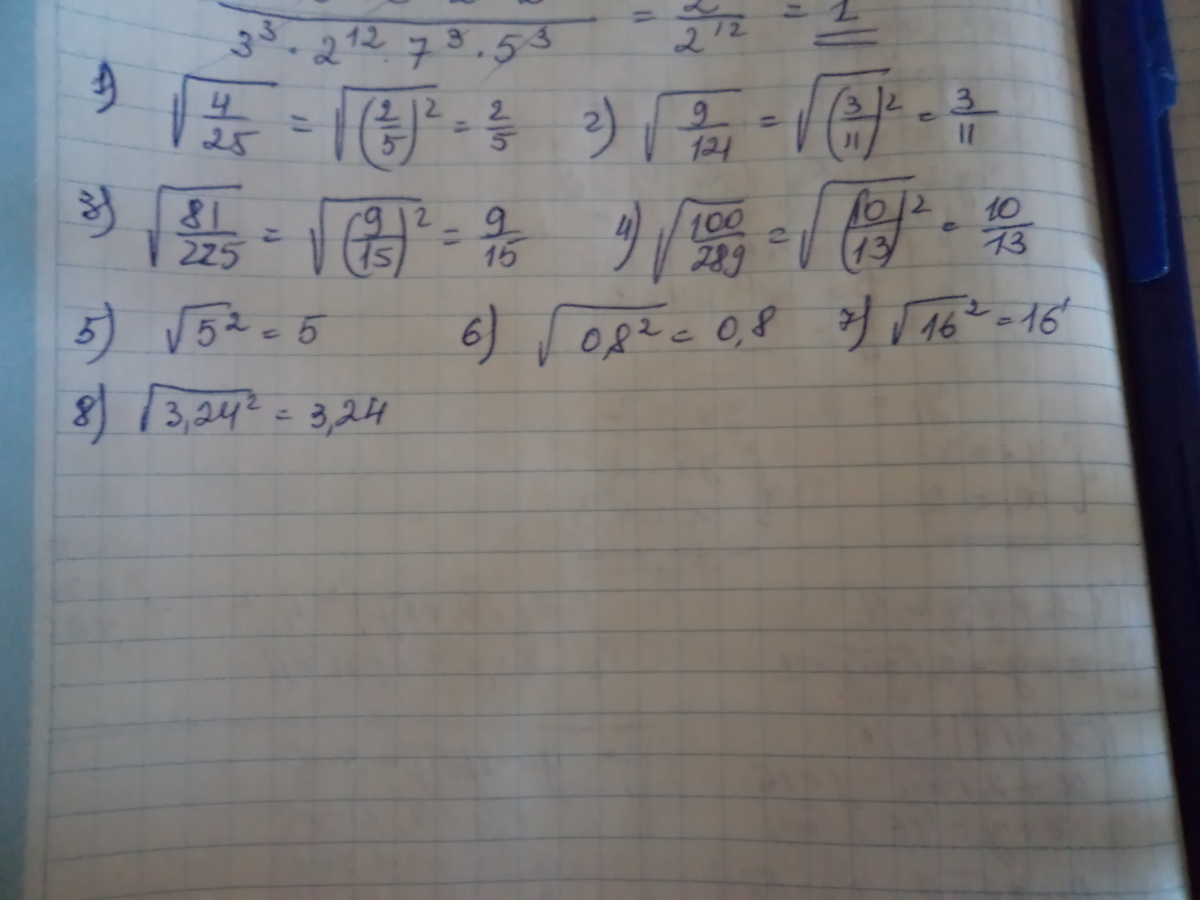 3³ · 2¹² · 7³ · 5³ = 2/2¹² = 1
1) √(4/25) = √(2/5)² = 2/5 2) √(9/121) = √(3/11)² = 3/11
3) √(81/225) = √(9/15)² = 9/15 4) √(100/289) = √(10/13)² = 10/13
5) √5² = 5 6) √0,8² = 0,8 7) √16² = 16
8) √3,24² = 3,24